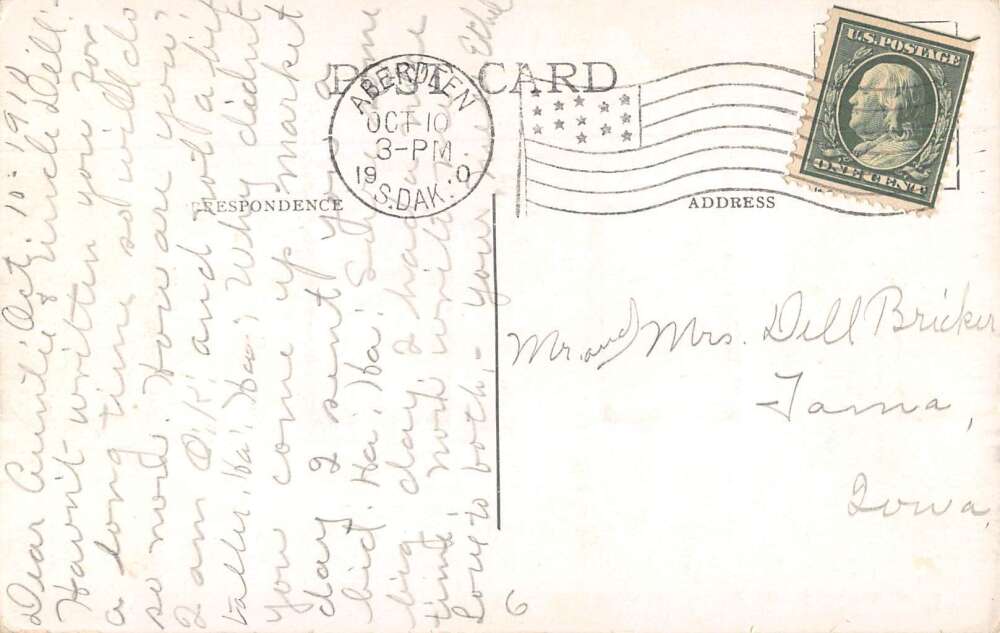 POST CARD
ABERDEEN
OCT 10
3-PM
19 0
S.DAK.
U.S. POSTAGE
ONE CENT
RESPONDENCE
ADDRESS
Oct, 10 - 1910
Dear Auntie & Uncle Dell:-
Havn't written you for
a long time so will do
so now. How are you?
I am O.K. and not a bit
taller. Ha! Ha! Why didn't
you come up market
day I sent you a
bid. Ha! Ha! Some
big day. I had
time, now write
Love to both, - your Ethel
Mr. and Mrs. Dell Bricker
Tama,
Iowa,
6